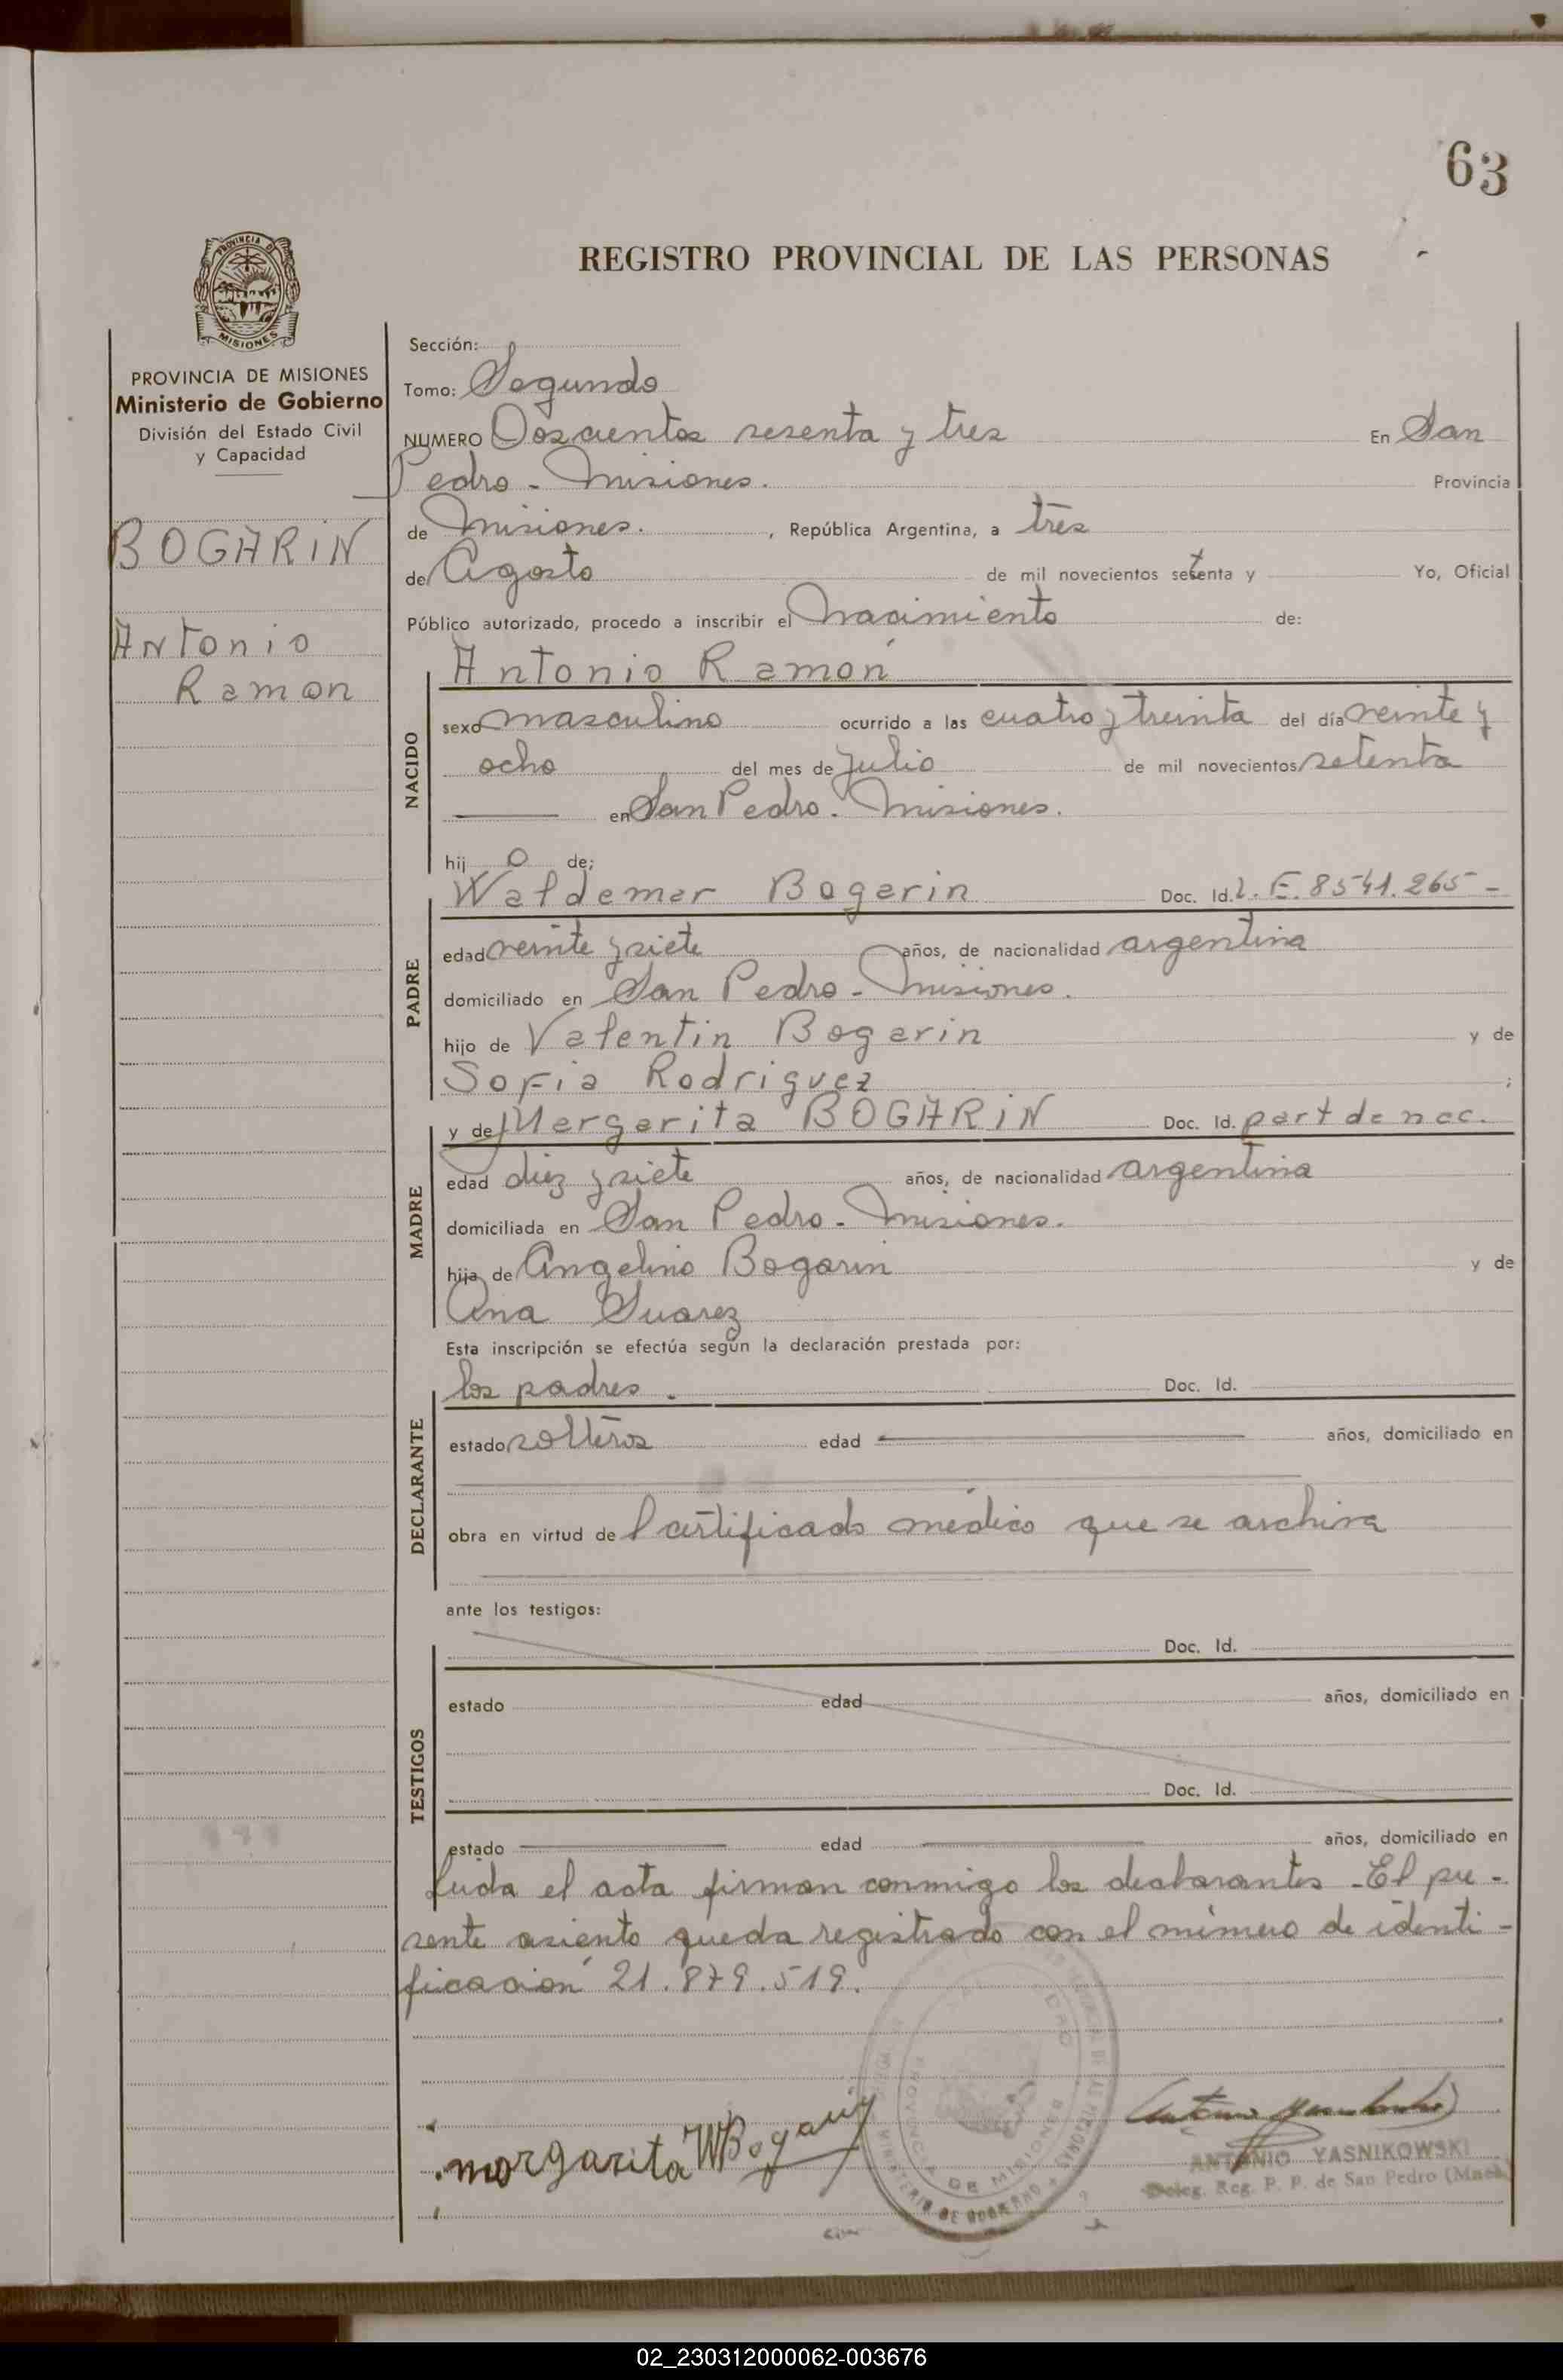 63
REGISTRO PROVINCIAL DE LAS PERSONAS
PROVINCIA DE MISIONES
Ministerio de Gobierno
División del Estado Civil
y Capacidad
BOGARIN
Antonio
Ramon
Sección:
Tomo: Segundo
NUMERO Doscientos sesenta y tres En San
Pedro - Misiones. Provincia
de Misiones. , República Argentina, a tres
de Agosto de mil novecientos setenta y Yo, Oficial
Público autorizado, procedo a inscribir el Nacimiento de:
NACIDO
Antonio Ramón
sexo masculino ocurrido a las cuatro y treinta del día veinte y
ocho del mes de Julio de mil novecientos setenta
en San Pedro. Misiones.
hij o de;
PADRE
Waldemar Bogarin Doc. Id. L. E. 8541.265-
edad veinte y siete años, de nacionalidad argentina
domiciliado en San Pedro - Misiones.
hijo de Valentin Bogarin y de
Sofia Rodriguez ;
MADRE
y de Margarita BOGARIN Doc. Id. part de nac.
edad diez y siete años, de nacionalidad argentina
domiciliada en San Pedro - Misiones.
hija de Angelino Bogarin y de
Ana Suarez
Esta inscripción se efectúa según la declaración prestada por:
DECLARANTE
los padres. Doc. Id.
estado solteros edad años, domiciliado en
obra en virtud de Certificado médico que se archiva
ante los testigos:
TESTIGOS
Doc. Id.
estado edad años, domiciliado en
Doc. Id.
estado edad años, domiciliado en
Leida el acta firman conmigo los declarantes - El pre-
sente asiento queda registrado con el número de identi-
ficación 21.879.519.
margarita W Bogarin
PROVINCIA DE MISIONES
MINISTERIO DE GOBIERNO
ANTONIO YASNIKOWSKI
Deleg. Reg. P. P. de San Pedro (Mnes)
02_230312000062-003676